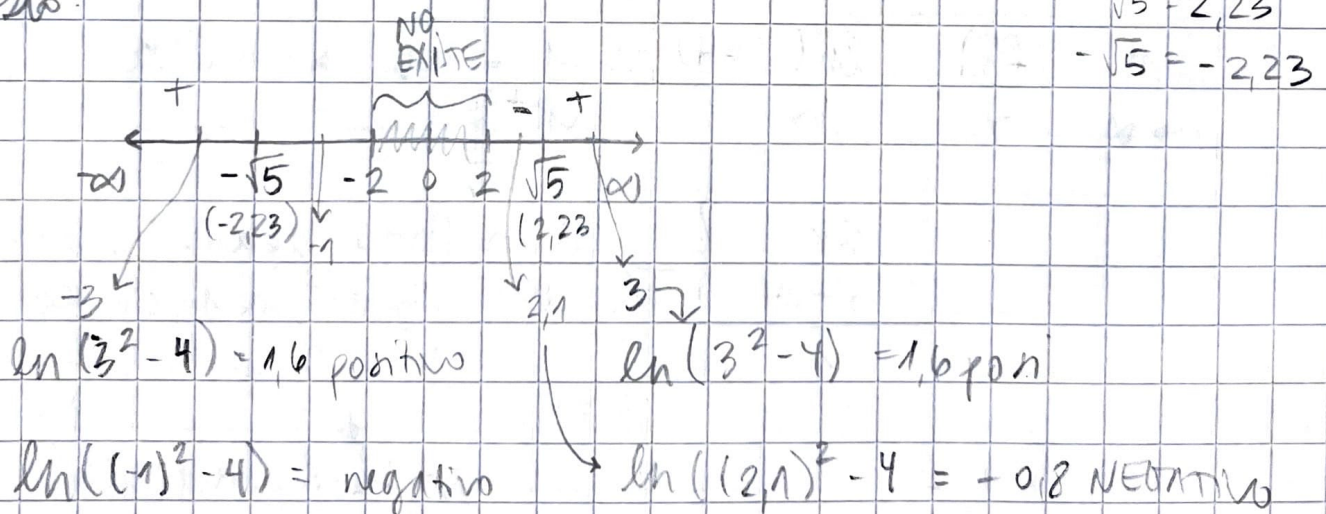 √5 = 2,23
-√5 = -2,23
NO
EXISTE
+ - +
-∞ -√5 -2 0 2 √5 ∞
(-2,23) -1 (2,23
-3 2,1 3
ln(3² - 4) = 1,6 positivo ln(3² - 4) = 1,6 posi
ln((-1)² - 4) = negativo ln((2,1)² - 4 = -0,8 NEGATIVO